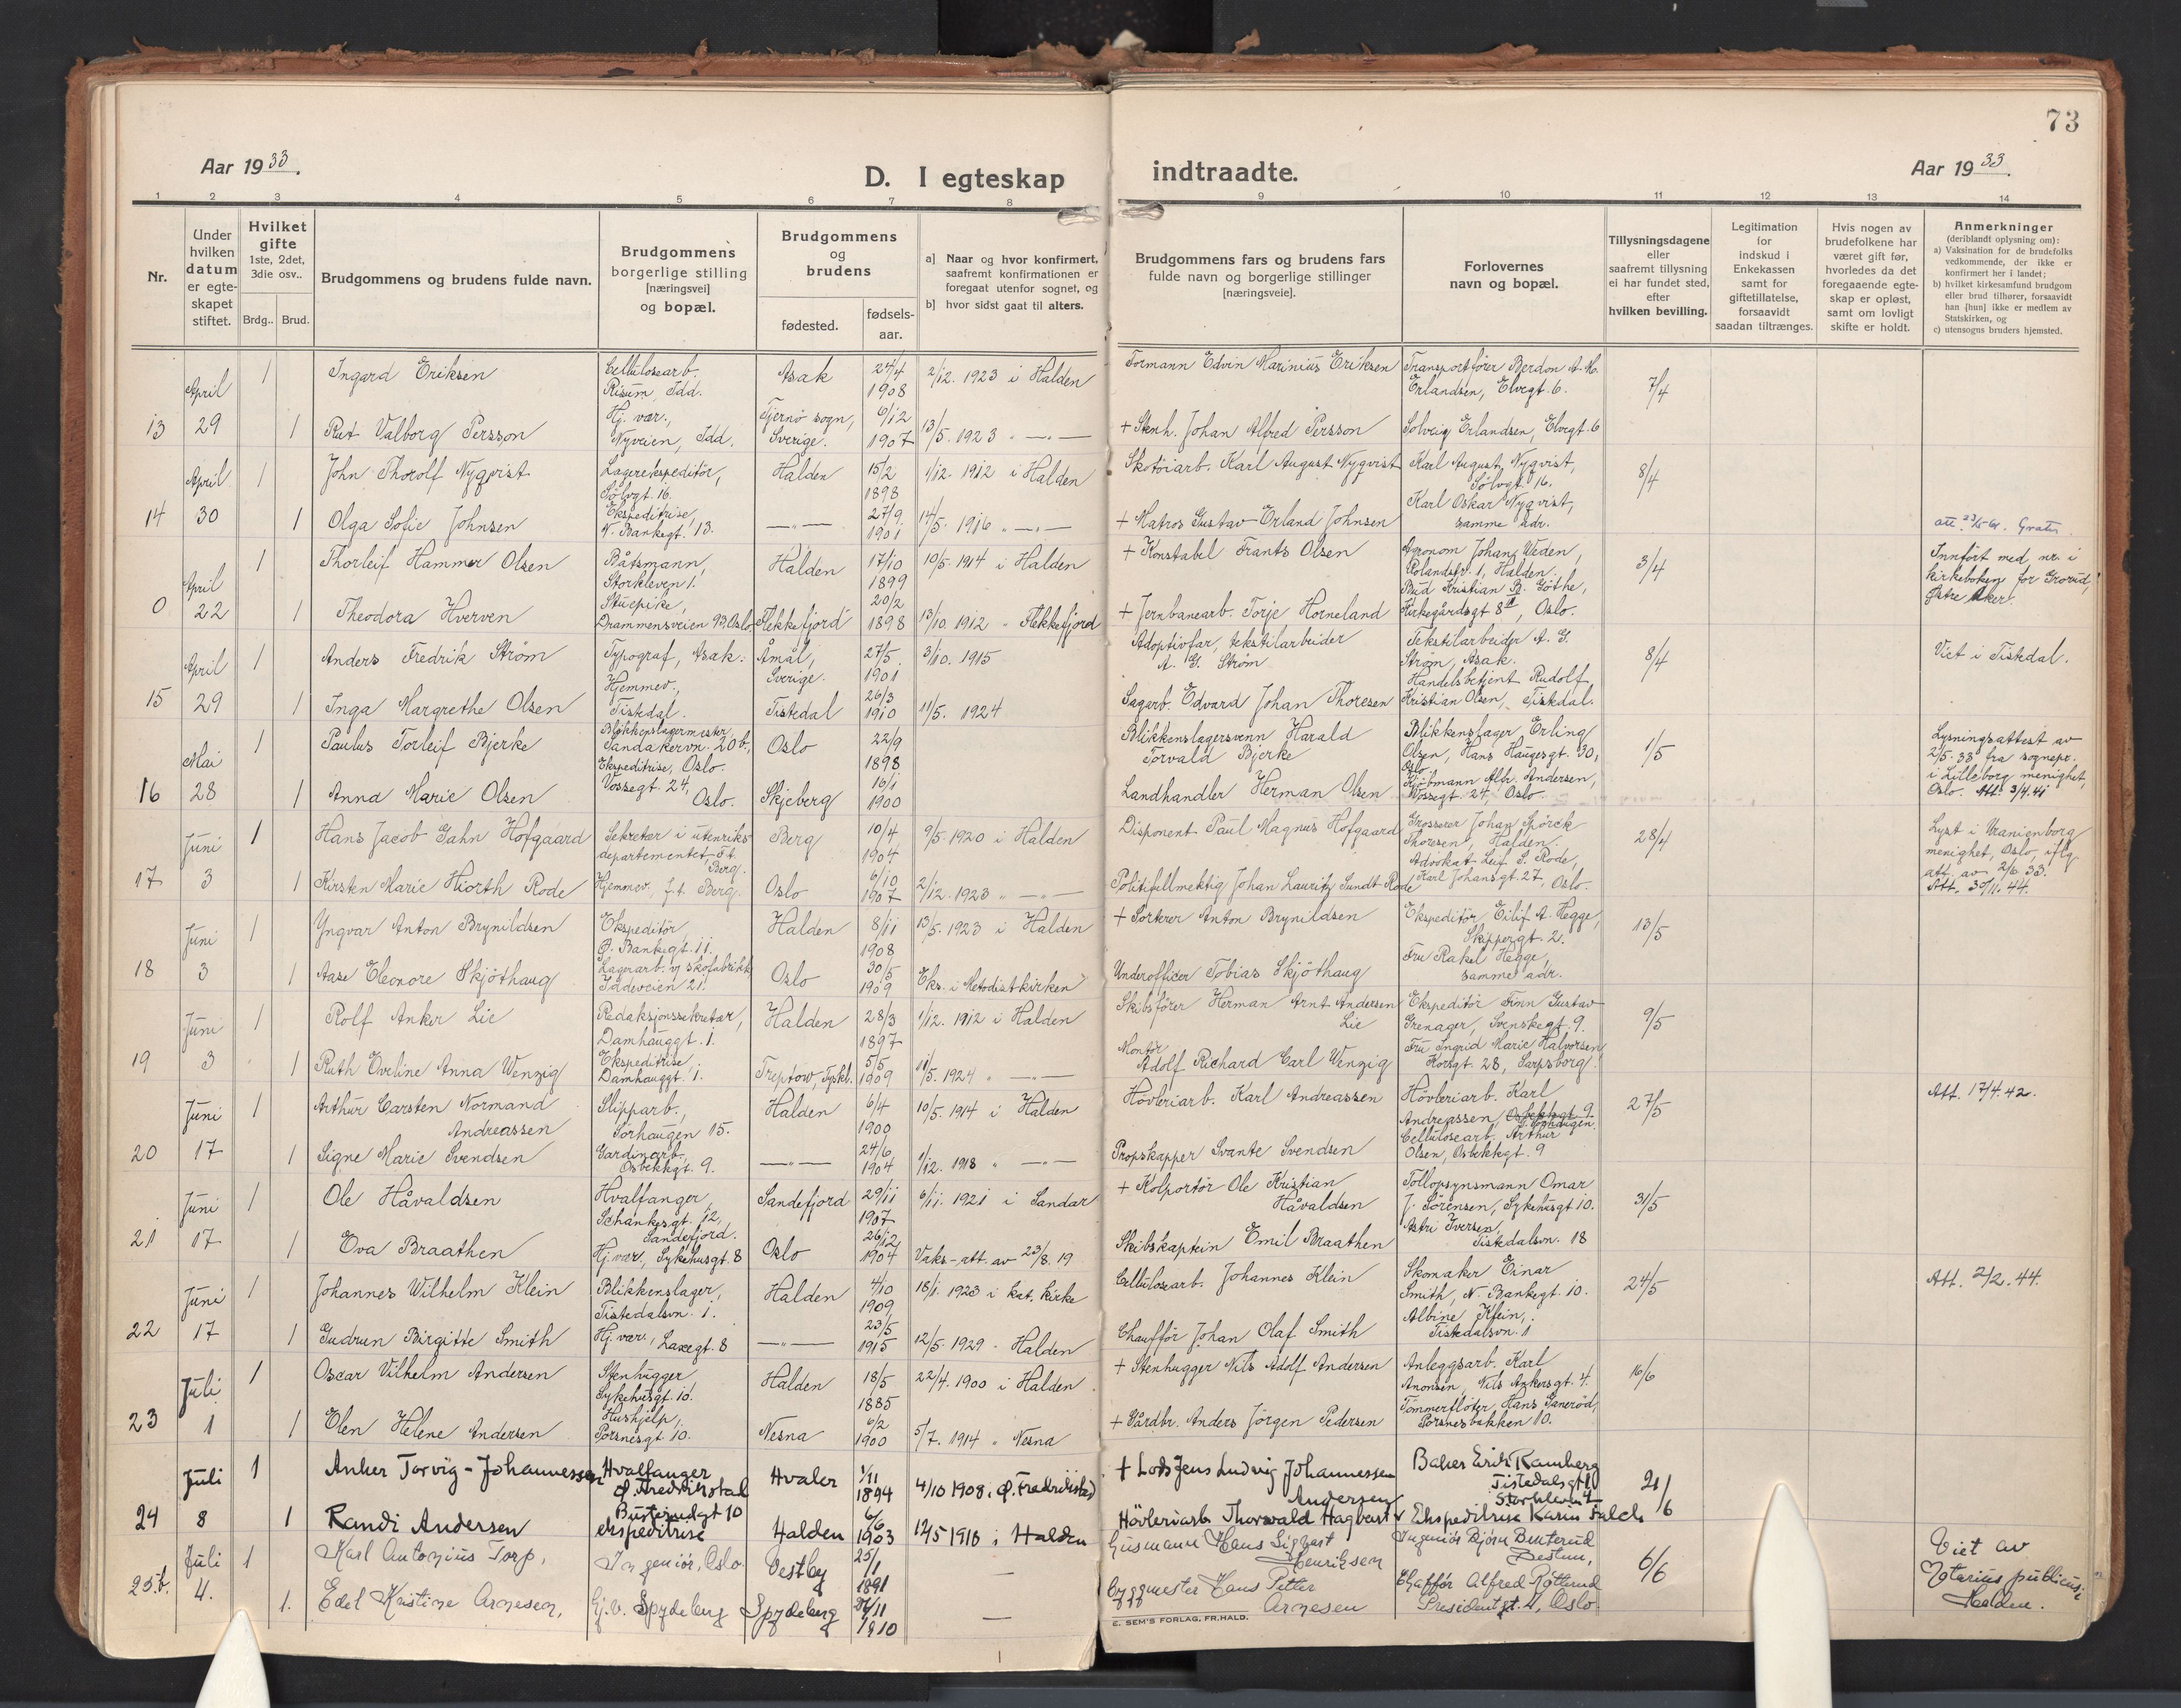 73
Aar 1933.
D. I egteskap
indtraadte.
Aar 1933.
1 2 3 4 5 6 7 8 9 10 11 12 13 14
Nr.
Under hvilken datum er egteskapet stiftet.
Hvilket gifte 1ste, 2det, 3die osv..
Brdg.. Brud.
Brudgommens og brudens fulde navn.
Brudgommens borgerlige stilling [næringsvei] og bopæl.
Brudgommens og brudens
fødested.
fødsels-aar.
a] Naar og hvor konfirmert, saafremt konfirmationen er foregaat utenfor sognet, og
b] hvor sidst gaat til alters.
Brudgommens fars og brudens fars fulde navn og borgerlige stillinger [næringsveie].
Forlovernes navn og bopæl.
Tillysningsdagene eller saafremt tillysning ei har fundet sted, efter hvilken bevilling.
Legitimation for indskud i Enkekassen samt for giftetillatelse, forsaavidt saadan tiltrænges.
Hvis nogen av brudefolkene har været gift før, hvorledes da det foregaaende egteskap er opløst, samt om lovligt skifte er holdt.
Anmerkninger (deriblandt oplysning om):
a) Vaksination for de brudefolks vedkommende, der ikke er konfirmert her i landet;
b) hvilket kirkesamfund brudgom eller brud tilhører, forsaavidt han [hun] ikke er medlem av Statskirken, og
c) utensogns bruders hjemsted.
April 1 Ingard Eriksen Cellulosearb. Risum, Idd. Asak 24/4 1908 2/12. 1923 i Halden Formann Edvin Marinius Eriksen Transportfører Berdon A. M. Erlandsen, Elvegt. 6. 7/4
13 29 1 Rut Valborg Persson Hj. vær., Nyveien, Idd. Tjernø sogn, Sverige. 6/12 1907 13/5. 1923 " —"— + Stenh. Johan Alfred Persson Solveig Erlandsen, Elvegt. 6
April 1 John Thorolf Nyqvist Lagerekspeditør, Sølvgt. 16. Halden 15/2 1898 1/12. 1912 i Halden Skotøiarb. Karl August Nyqvist Karl August Nyqvist, Sølvgt. 16. 8/4
14 30 1 Olga Sofie Johnsen Ekspeditrise, N. Bankegt. 13. —"— 27/9. 1901 14/5. 1916 " —"— + Matros Gustav Erland Johnsen Karl Oskar Nyqvist, samme adr. att. 23/5-61. Gratis.
1 Thorleif Hammer Olsen Båtsmann, Storkleven 1. Halden 17/10 1899 10/5. 1914 i Halden + Konstabel Frants Olsen Agronom Johan Weden, Rolandsv. 1, Halden. 3/4 Innført med nr. i kirkeboken for Grorud, Østre Aker.
0 April 22 1 Theodora Hverven Stuepike, Drammensveien 93, Oslo Flekkefjord 20/2 1898 13/10. 1912 " Flekkefjord + Jernbanearb. Torje Horneland Bud Kristian B. Göthe, Kirkegårdsgt 8 II, Oslo.
April 1 Anders Fredrik Strøm Typograf, Asak. Åmål, Sverige. 27/5. 1901 3/10. 1915 Adoptivfar, tekstilarbeider A. G. Strøm Tekstilarbeider A. G. Strøm, Asak. 8/4 Viet i Tistedal.
15 29 1 Inga Margrethe Olsen Hjemmev., Tistedal. Tistedal 26/3 1910 11/5. 1924 Sagarb. Edvard Johan Thoresen Handelsbetjent Rudolf Kristian Olsen, Tistedal.
Mai 1 Paulus Torleif Bjerke Blikkenslagermester, Sandakervn. 20 b, Oslo. Oslo 22/9 1898 Blikkenslagersvenn Harald Torvald Bjerke Blikkenslager Erling Olsen, Hans Haugesgt. 30, Oslo. 1/5 Lysningsattest av 2/5. 33 fra sognepr. i Lilleborg menighet, Oslo. Att. 3/4. 41
16 28 1 Anna Marie Olsen Ekspeditrise, Vossegt. 24, Oslo. Skjeberg 16/1 1900 Landhandler Herman Olsen Kjøbmann Alb. Andersen, Vossegt. 24, Oslo.
Juni 1 Hans Jacob Gahn Hofgaard Sekretær i utenriks-departementet, f.t. Berg. Berg 10/4 1904 9/5 1920 i Halden Disponent Paul Magnus Hofgaard Grosserer Johan Spörck Thoresen, Halden. 28/4 Lyst i Uranienborg menighet, Oslo, iflg. att. av 2/6 33. Att. 30/11. 44.
17 3 1 Kirsten Marie Hiorth Rode Hjemmev. f.t. Berg. Oslo 6/10 1907 2/12. 1923 " —"— Politifullmektig Johan Lauritz Sundt Rode Advokat Leif S. Rode, Karl Johansgt. 27, Oslo.
Juni 1 Yngvar Anton Brynildsen Ekspeditør, Ø. Bankegt. 11. Halden 8/11 1908 13/5. 1923 i Halden + Sorterer Anton Brynildsen Ekspeditør Eilif A. Hegge, Skippergt. 2. 13/5
18 3 1 Aase Eleonore Skjøthaug Lagerarb. v/ skofabrikk Iddeveien 21. Oslo 30/5 1909 Eks. i Metodistkirken Underofficer Tobias Skjøthaug Fru Rakel Hegge, samme adr.
Juni 1 Rolf Anker Lie Redaksjonssekretær, Damhauggt. 1. Halden 28/3 1897 1/12. 1912 i Halden Skibsfører Herman Arnt Andersen Lie Ekspeditør Finn Gustav Grenager, Svenskegt. 9. 9/5
19 3 1 Ruth Eveline Anna Wenzig Ekspeditrise, Damhauggt. 1. Treptow, Tyskl. 5/5 1909 11/5. 1924 " —"— Montør Adolf Richard Carl Wenzig Fru Ingrid Marie Halvorsen Korsgt. 28, Sarpsborg.
Juni 1 Arthur Carsten Normand Andreassen Slipparb., Torhaugen 15. Halden 6/4 1900 10/5. 1914 i Halden Høvleriarb. Karl Andreassen Høvleriarb. Karl Andreassen, Osbekkgt. 9. Torhaugen. 27/5 Att. 17/4. 42.
20 17 1 Signe Marie Svendsen Gardinarb., Osbekkgt. 9. —"— 24/6 1904 1/12. 1918 " —"— Propskapper Svante Svendsen Cellulosearb. Arthur Olsen, Osbekkgt. 9
Juni 1 Ole Håvaldsen Hvalfanger, Schankesgt. 12, Sandefjord. Sandefjord 29/11 1907 6/11. 1921 i Sandar + Kolportør Ole Kristian Håvaldsen Tollopsynsmann Omar J. Sørensen, Sykehusgt 10. 31/5
21 17 1 Eva Braathen Hj. vær., Sykehusgt. 8 Oslo 26/12 1904 Vaks.-att. av 23/8. 19 Skibskaptein Emil Braathen Astri Iversen, Tistedalsvn. 18
Juni 1 Johannes Wilhelm Klein Blikkenslager, Tistedalsvn. 1. Halden 4/10 1909 18/1. 1923 i kat. kirke Cellulosearb. Johannes Klein Skomaker Einar Smith, N. Bankegt. 10. 24/5 Att. 2/2. 44.
22 17 1 Gudrun Birgitte Smith Hj. vær., Laxegt. 8 —"— 23/5 1915 12/5. 1929 - Halden Chauffør Johan Olaf Smith Albine Klein, Tistedalsvn. 1
Juli 1 Oscar Vilhelm Andersen Stenhugger, Sykehusgt. 10. Halden 18/5 1885 22/4. 1900 i Halden + Stenhugger Nils Adolf Andersen Anleggsarb. Karl Anonsen, Nils Ankersgt. 4. 16/6
23 1 1 Elen Helene Andersen Hushjelp, Porsnesgt. 10. Nesna 6/2 1900 5/7. 1914 " Nesna + Gårdbr. Anders Jørgen Pedersen Tømmerfløter Hans Ganerød, Porsnesbakken 10.
Juli 1 Anker Torvig-Johannessen Hvalfanger Ø. Fredrikstad Hvaler 1/11 1894 4/10 1908 i Ø. Fredrikstad + Lods Jens Ludvig Johannessen Baker Erik Ramberg Tistedalsgt 1 Storkleven 4 21/6
24 8 1 Randi Andersen Busterudgt 10 ekspeditrise Halden 6/6 1903 12/5 1918 i Halden Høvleriarb. Thorvald Hagbart Andersen Ekspeditrise Karin Falch
Juli 1 Karl Antonius Torp, Ingeniør, Oslo. Vestby 25/1 1891 — Husmann Hans Sigvart Henriksen Ingeniør Bjørn Bunterud Bestum, 6/6 Viet av Notarius publicus i Halden.
25.b. 4. 1. Edel Kristine Arnesen, Hj. v. Spydeberg Spydeberg 24/11 1910 — Byggmester Hans Petter Arnesen Chaffør Alfred Røtlund Presidentgt. 4, Oslo.
E. SEM'S FORLAG, FR.HALD.